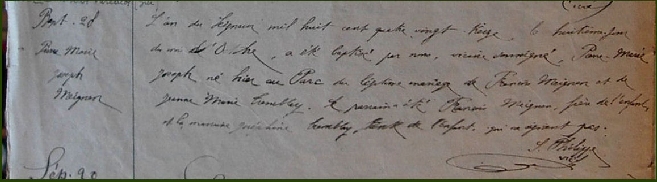 Curé
Bapt. 28
Pierre Marie
Joseph
Meignen
L'an du Seigneur mil huit cent quatre vingt treize, le huitième jour
du mois d'Octobre, a été baptisé par nous, vicaire soussigné, Pierre Marie
Joseph né hier au Parc du légitime mariage de Francis Meignen et de
Marie Tremblay. Le parrain a été Francis Meignen, père de l'enfant
et la marraine Tremblay, tante de l'enfant qui ne signent pas.
Philippe
vic.
Sép. 20